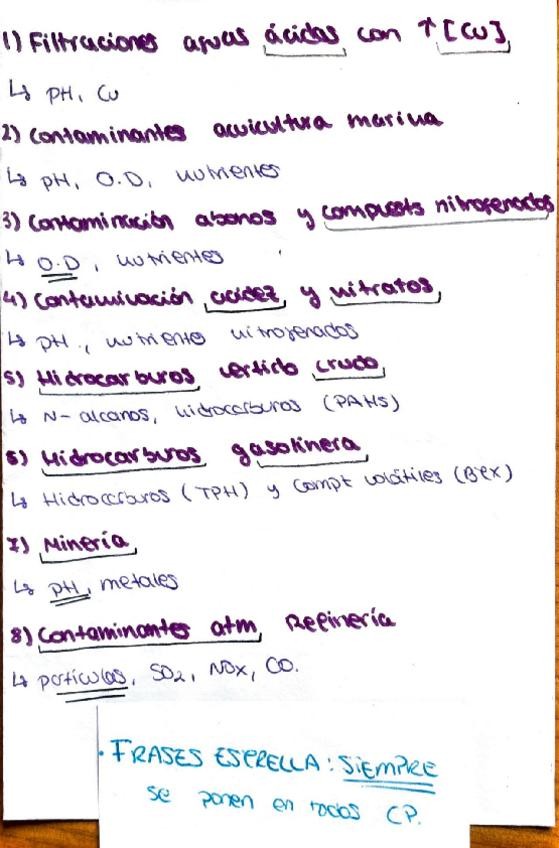 1) Filtraciones aguas ácidas con ↑ [Cu]
↳ pH, Cu
2) Contaminantes acuicultura marina
↳ pH, O.D, nutrientes
3) Contaminación abonos y compuests nitrogenados
↳ O.D, nutrientes
4) Contaminación acidez y nitratos
↳ pH, nutriente nitrogenados
5) Hidrocarburos vertido crudo
↳ N-alcanos, hidrocarburos (PAHs)
6) Hidrocarburos gasolinera
↳ Hidrocarburos (TPH) y Compt volátiles (BTX)
7) Minería
↳ pH, metales
8) Contaminantes atm Refinería
↳ partículas, SO2, NOx, CO.
· FRASES ESTRELLA: SIEMPRE
se ponen en todos CP.